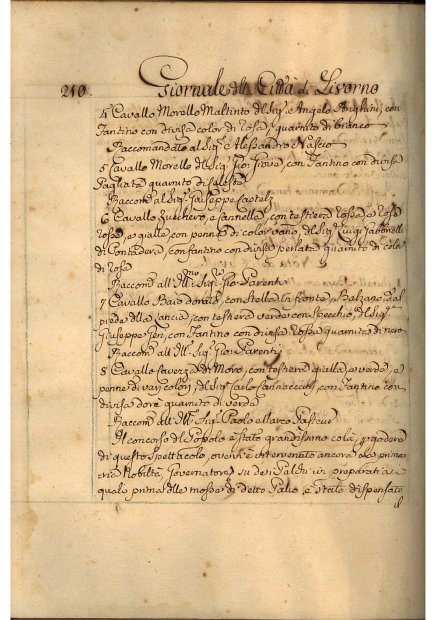 210. Giornale della Città di Livorno
4 Cavallo Morello Maltinto del Sig.e Angelo, con
Fantino con divisa color di rosa, guarnito di bianco
Raccomandato al Sig.e Alessandro Nasco
5 Cavallo Morello del Sig.e Gio:, con Fantino con divisa
Pagliata guarnito di Celeste
Raccom.d al Sig.e Giuseppe
6 Cavallo Zucchero, e Cannella, con testiera rossa, e rosa
rossa, e gialla, con penne di color vario, del Sig.e Luigi
di Pontadera, con fantino con divisa perlata guarnito di color
di rosa
Raccom.d all' Ill.mo Sig.e Gio: Parenti
7 Cavallo Baio dorato, con stella in fronte, Balzano dal
piede della lancia, con testiera verde con specchio, del Sig.e
Giuseppe, con Fantino con divisa rossa guarnita di nero
Raccom.d all' Ill. Sig.e Gio: Parenti
8 Cavallo di Moro, con testiera gialla, e verde, e
penne di varj colori, del Sig.e, con Fantino con
divisa dorè guarnito di verde
Raccom.d all' Ill. Sig.e Paolo Marco
Il concorso del Popolo è stato grandissimo colà, p. godere
di questo spettacolo, ov'è intervenuto ancora
Nobiltà, Governatore su dei Palchi ivi preparati a
quali prima delle mosse di detto Palio è stato dispensato
il